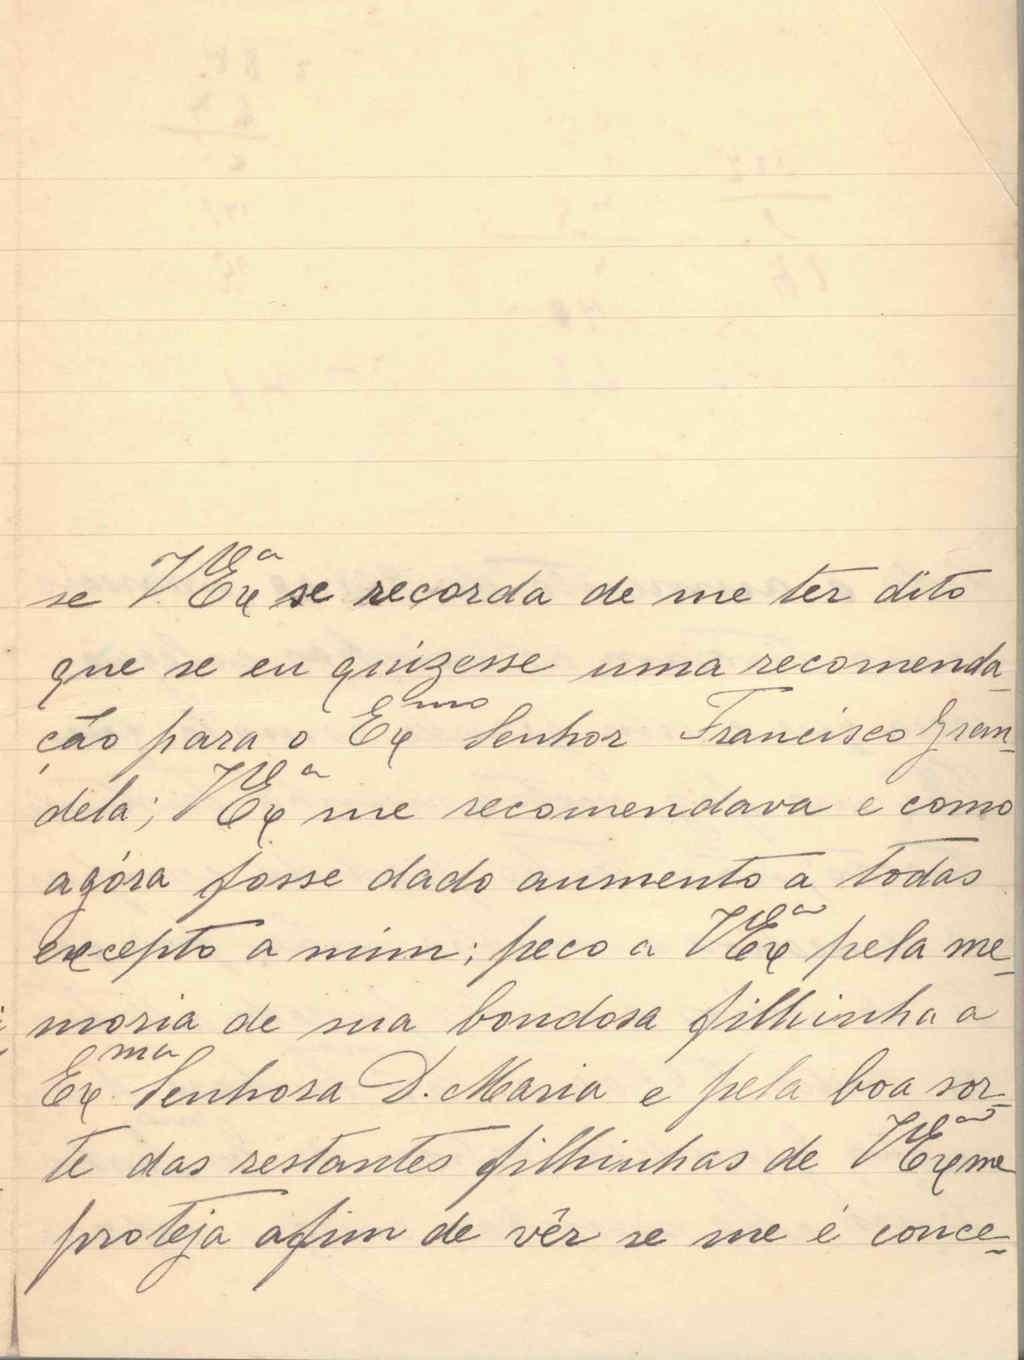 se V. Exª se recorda de me ter dito
que se eu quizesse uma recomenda-
ção para o Exmo Senhor Francisco Gran-
dela; V Exª me recomendava e como
agóra fosse dado aumento a todas
excepto a mim; peco a V Exª pela me-
moria de sua bondosa filhinha a
Exma Senhora D. Maria e pela boa sor-
te das restantes filhinhas de V Exª me
proteja afim de vêr se me é conce-